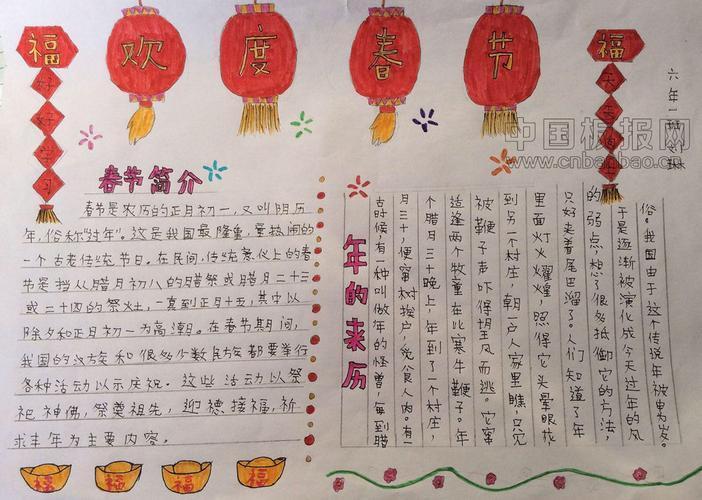 福
欢度春节
福
好好学习
天天向上
六年一班
中国板报网
www.cnbanbao.cn
春节简介
春节是农历的正月初一，又叫阴历
年，俗称“过年”。这是我国最隆重，最热闹的
一个古老传统节日。在民间，传统意义上的春
节是指从腊月初八的腊祭或腊月二十三
或二十四的祭灶，一直到正月十五，其中以
除夕和正月初一为高潮。在春节期间，
我国的汉族和很多少数民族都要举行
各种活动以示庆祝。这些活动以祭
祀神佛，祭奠祖先，迎禧接福，祈
求丰年为主要内容。
年的来历
古时候，有一种叫做年的怪兽，每到腊
月三十，便窜村挨户，觅食人肉。有一
个腊月三十晚上，年到了一个村庄，
适逢两个牧童在比赛牛鞭子。年
被鞭子声吓得望风而逃。它窜
到另一个村庄，朝一户人家里瞧，只见
里面灯火耀煌，照得它头晕眼花，
只好夹着尾巴溜了。人们知道了年
的弱点，想了很多抵御它的方法，
于是逐渐被演化成今天过年的风
俗。我国由于这个传说年被申为岁。
福
福
福
福